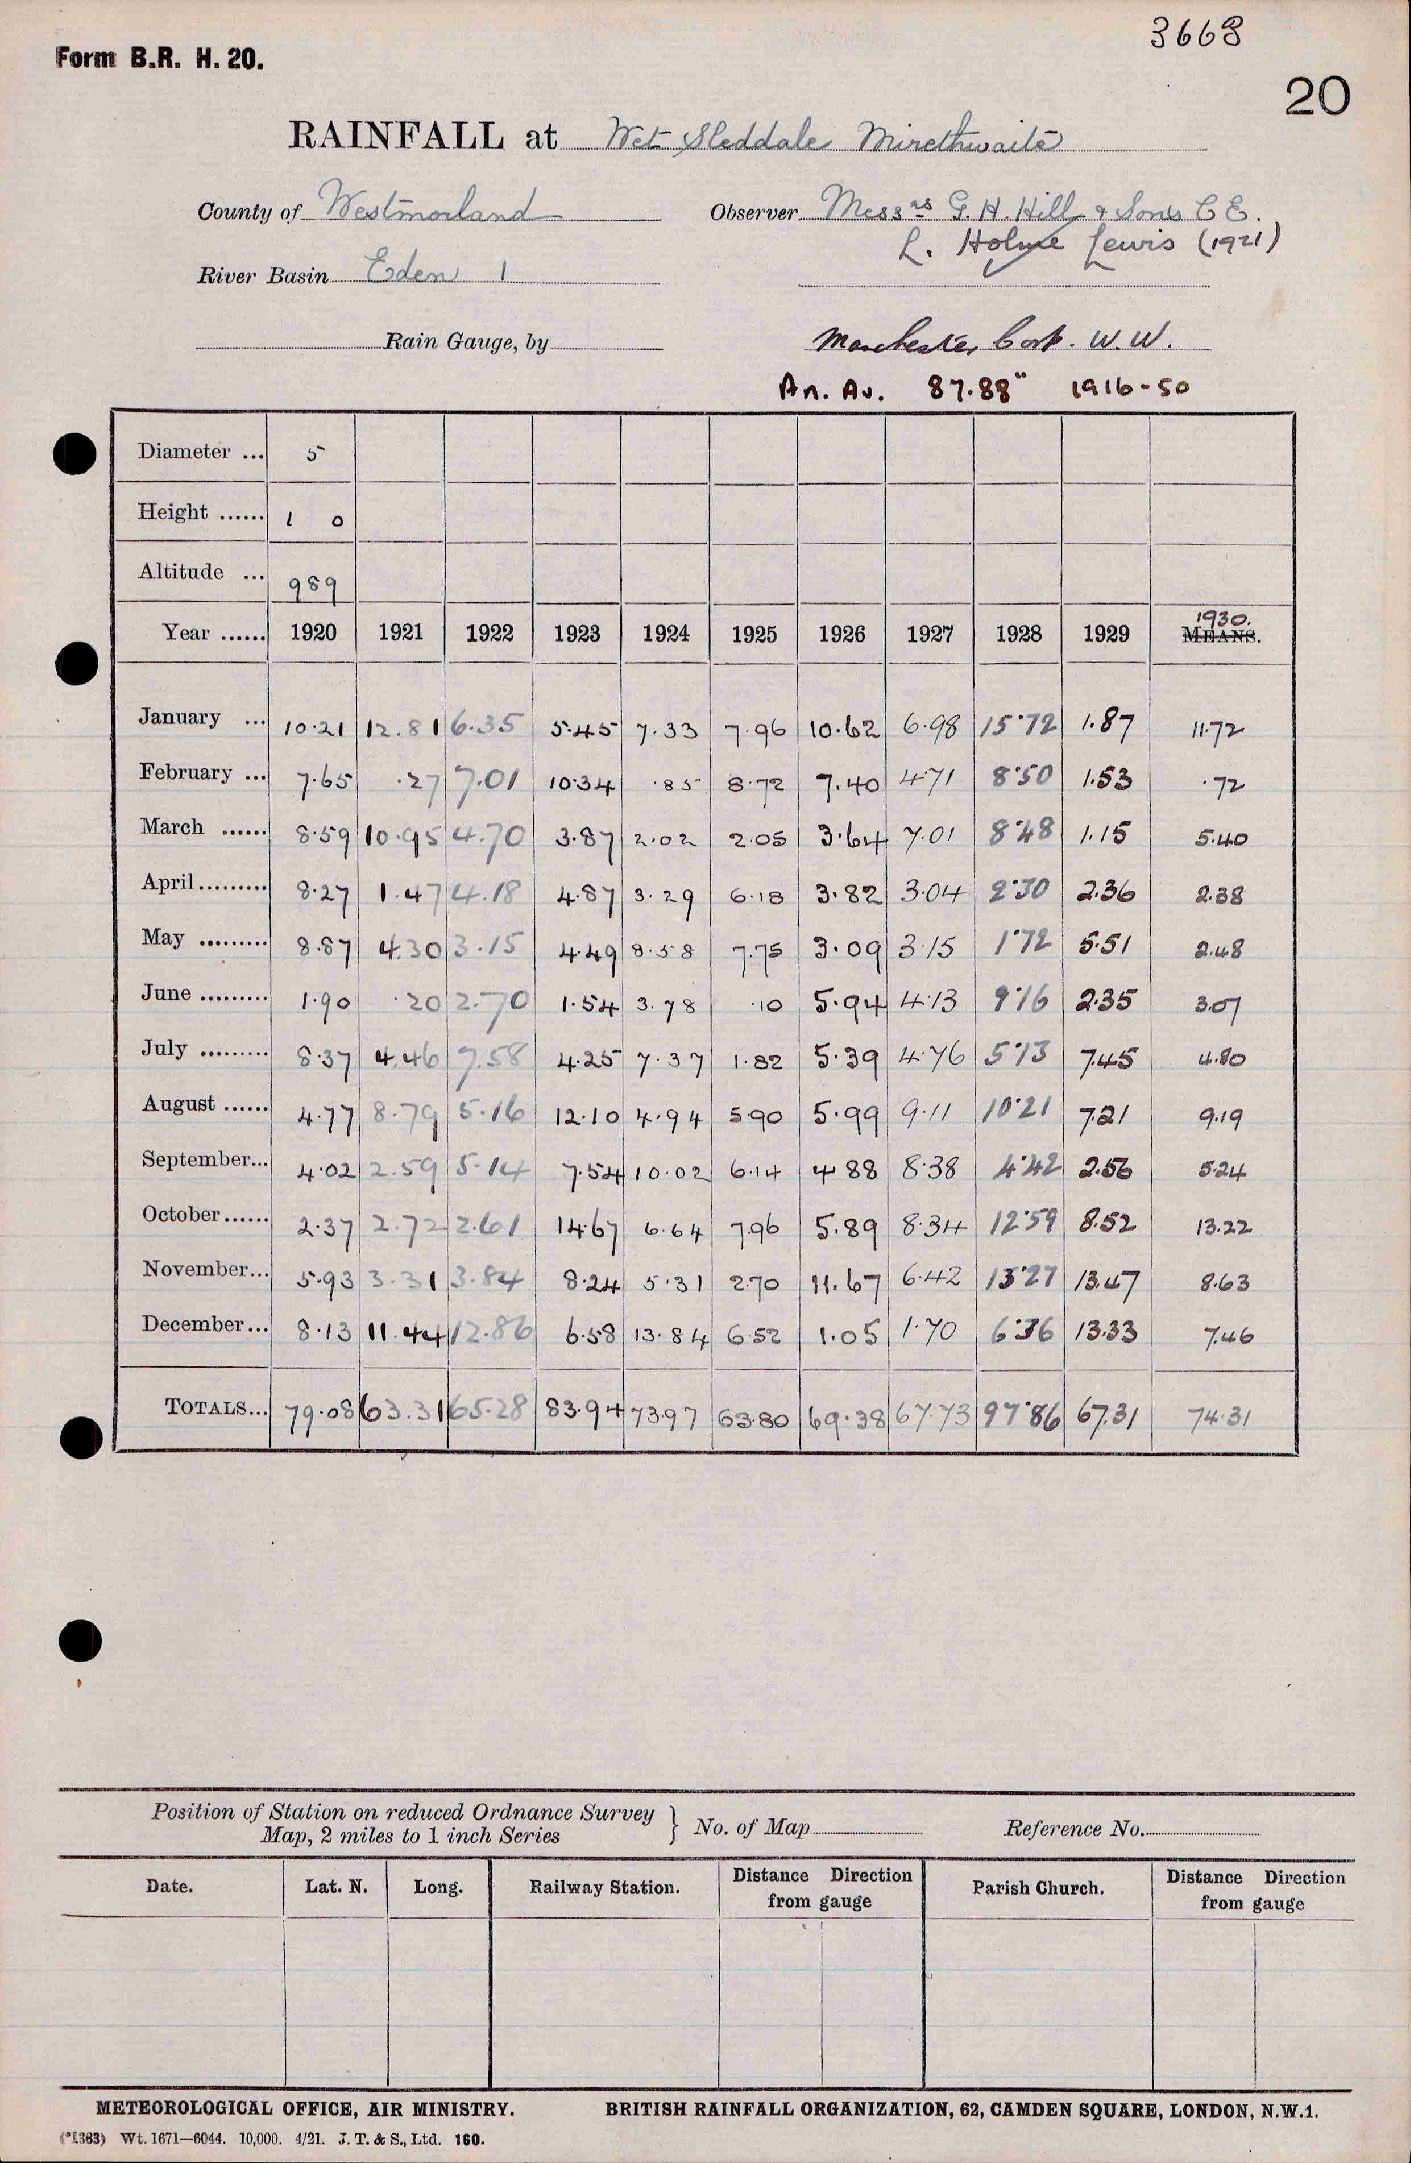 3668
Form B.R. H. 20.
20
RAINFALL at Wet Sleddale Mirethwaite
County of Westmorland Observer Messrs G. H. Hill & Sons C E.
L. Holme Lewis (1921)
River Basin Eden 1
Rain Gauge, by Manchester Corp. W. W.
An. Av. 87.88" 1916-50
Diameter ... 5
Height ...... 1 0
Altitude ... 989
1930.
Year ...... 1920 1921 1922 1923 1924 1925 1926 1927 1928 1929 MEANS.
January ... 10.21 12.81 6.35 5.45 7.33 7.96 10.62 6.98 15.72 1.87 11.72
February ... 7.65 .27 7.01 10.34 .85 8.72 7.40 4.71 8.50 1.53 .72
March ...... 8.59 10.95 4.70 3.87 2.02 2.05 3.64 7.01 8.48 1.15 5.40
April ......... 8.27 1.47 4.18 4.87 3.29 6.18 3.82 3.04 2.30 2.36 2.38
May ......... 8.87 4.30 3.15 4.49 8.58 7.75 3.09 3.15 1.72 5.51 2.48
June ......... 1.90 .20 2.70 1.54 3.78 .10 5.94 4.13 9.16 2.35 3.07
July ......... 8.37 4.46 7.58 4.25 7.37 1.82 5.39 4.76 5.13 7.45 4.80
August ...... 4.77 8.79 5.16 12.10 4.94 5.90 5.99 9.11 10.21 7.21 9.19
September... 4.02 2.59 5.14 7.54 10.02 6.14 4.88 8.38 4.42 2.56 5.24
October ...... 2.37 2.72 2.61 14.67 6.64 7.96 5.89 8.34 12.59 8.52 13.22
November... 5.93 3.31 3.84 8.24 5.31 2.70 11.67 6.42 13.27 13.47 8.63
December... 8.13 11.44 12.86 6.58 13.84 6.52 1.05 1.70 6.36 13.33 7.46
TOTALS... 79.08 63.31 65.28 83.94 73.97 63.80 69.38 67.73 97.86 67.31 74.31
Position of Station on reduced Ordnance Survey
Map, 2 miles to 1 inch Series } No. of Map Reference No.
Date. Lat. N. Long. Railway Station. Distance Direction from gauge Parish Church. Distance Direction from gauge
METEOROLOGICAL OFFICE, AIR MINISTRY. BRITISH RAINFALL ORGANIZATION, 62, CAMDEN SQUARE, LONDON, N.W.1.
(*1383) Wt. 1671—6044. 10,000. 4/21. J. T. & S., Ltd. 160.